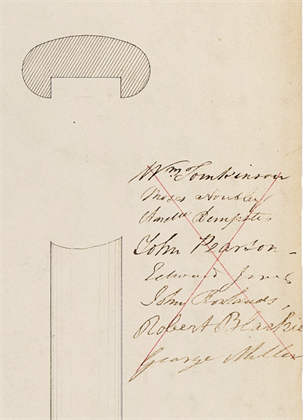 Wm Tomkinson
Moses Houbley
Dempster
John Pearson
Edward Jones
John Rowlands,
Robert Blackie
George Miller